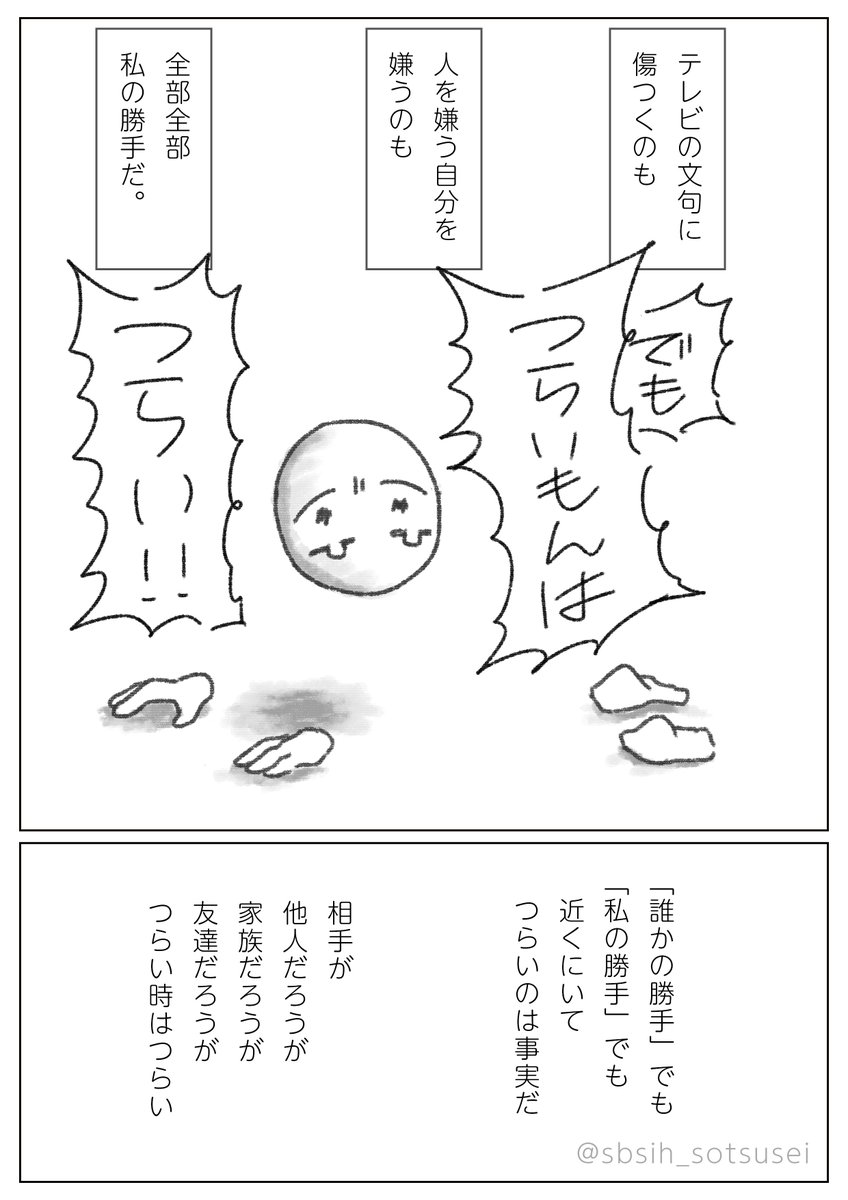 テレビの文句に
傷つくのも
人を嫌う自分を
嫌うのも
全部全部
私の勝手だ。
でも
つらいもんは
つらい!!
「誰かの勝手」でも
「私の勝手」でも
近くにいて
つらいのは事実だ
相手が
他人だろうが
家族だろうが
友達だろうが
つらい時はつらい
@sbsih_sotsusei